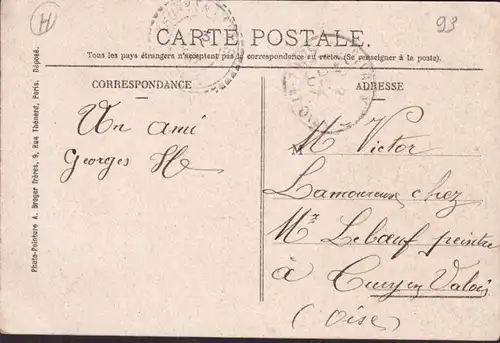 H
93
CARTE POSTALE.
Tous les pays étrangers n'acceptent pas la correspondance au recto. (Se renseigner à la poste).
CORRESPONDANCE
ADRESSE
Un ami
Georges H
M
Mr Victor
Lamoureux chez
Mr Lebœuf peintre
à Cuvy en Valois
(Oise)
Photo-Peinture A. Breger frères, 9, Rue Thénard, Paris. Déposé.